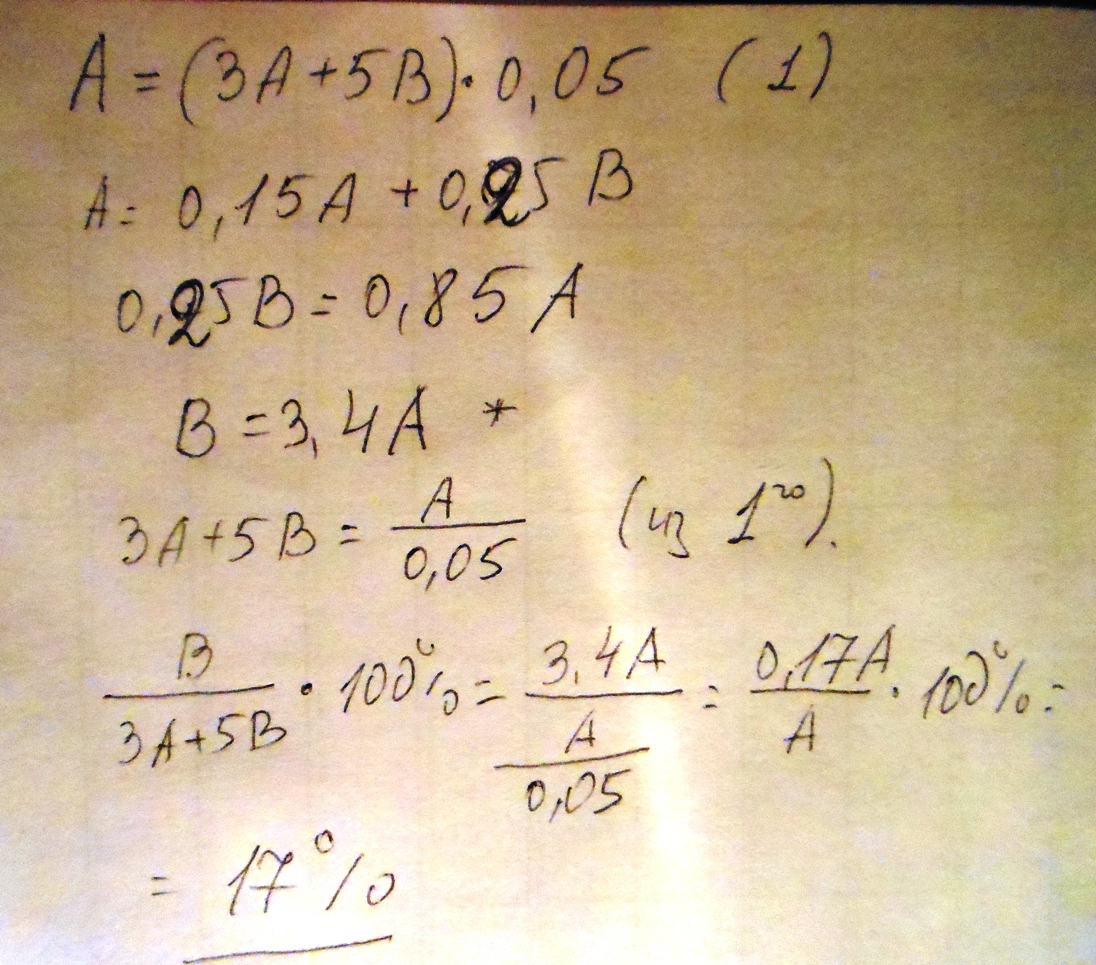 A = (3A+5B)·0,05 (1)
A = 0,15A + 0,25B
0,25B = 0,85A
B = 3,4A *
3A+5B = A/0,05 (из 1го).
B/(3A+5B) · 100% = 3,4A/(A/0,05) = 0,17A/A · 100% =
= 17%